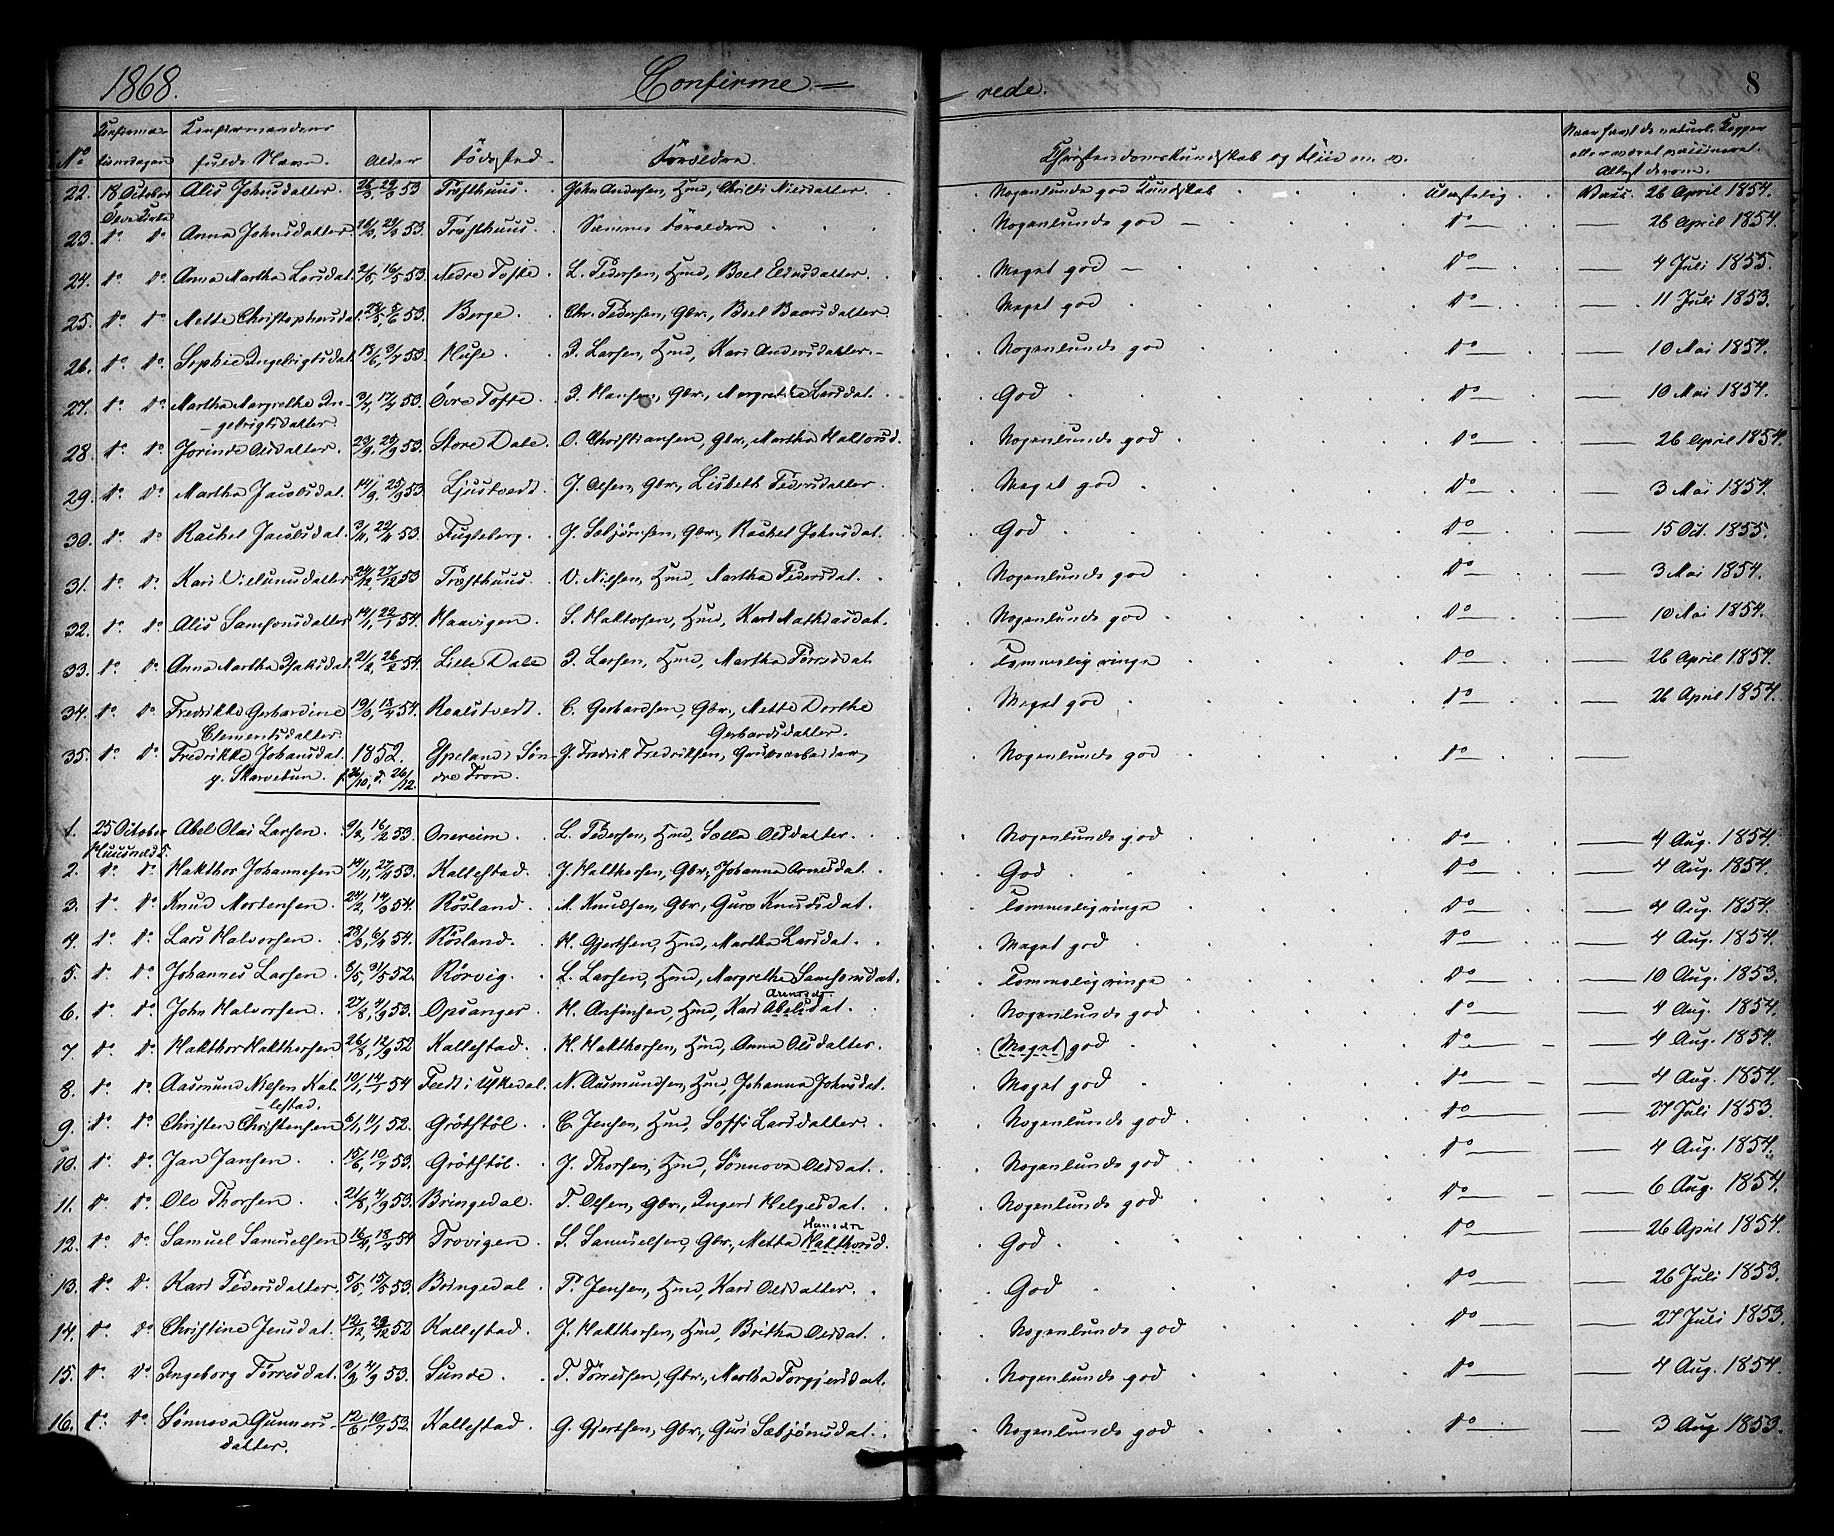 1868. Confirme - rede. 8
No Confirmationsdagen Confirmandens fulde Navn. Alder Fødested Forældre Christendomskundskab og Flid m. v. Naar havt de naturl. Kopper eller været vaccineret. Attest derom.
22. 18 October Alis Johnsdatter 53 Træsthuus. John Andersen, Hmd, Nilsdatter. Nogenlunde god Kundskab Ulastelig Vacc. 26 April 1854.
Øvre
23. do do Anna Johnsdatter 53. Træsthuus. Samme Forældre Nogenlunde god — do — 26 April 1854.
24. do do Anna Martha Larsdat. 53. Nedre Tofte. L. Pedersen, Hmd, Boel Elsdatter. Meget god — do — 4 Juli 1855.
25. do do Mette Christophersdat. 53. Berge. Chr. Pedersen, Gbr., Boel Baarsdatter Meget god do — 11 Juli 1853.
26. do do Sophie Ingebrigtsdat. 53. Huse. I. Larsen, Hmd, Kari Andersdatter. Nogenlunde god do — 10 Mai 1854.
27. do do Martha Margrethe In- 53. Øvre Tofte. I. Hansen, Gbr., Margrethe Larsdat. God do — 10 Mai 1854.
gebrigtsdatter
28. do do Jorinde Olsdatter 53. Store Dale. O. Christiansen, Gbr., Martha Haktorsd. Nogenlunde god do — 26 April 1854.
29. do do Martha Jacobsdat. 53. Ljustvedt. J. Olsen, Gbr., Lisbeth Pedersdatter Meget god do — 3 Mai 1854.
30. do do Rachel Jacobsdat. 53. Fugleberg. J. Sebjørnsen, Gbr., Rachel Johnsdat. God do — 15 Oct. 1855.
31. do do Kari Villumsdatter 24/12 27/12 53 Træsthuus. V. Nilsen, Hmd, Martha Pedersdat. Nogenlunde god do — 3 Mai 1854.
32. do do Alis Samsonsdatter 14/1, 22/1 54. Haavigen. S. Haktorsen, Hmd, Kari Mathiasdat. Nogenlunde god do — 10 Mai 1854.
33. do do Anna Martha Isaksdat. 21/2, 26/2 54. Lille Dale I. Larsen, Hmd, Martha Tørresdat Temmelig ringe do — 26 April 1854.
34. do do Fredrikke Gerhardine 54. Roaldstvedt. C. Gerhardsen, Gbr., Mette Dorthe Meget god do — 26 April 1854.
Clementsdatter. Gerhardsdatter.
35. do do Fredrikke Johansdat. 1852. Ypeland, Søn- J. Fredrik Fredriksen, Grubearbeider, Nogenlunde god do —
Skarvetun f. 26/10, d. 26/12. dre Fron.
1. 25 October Abel Olai Larsen 9/2, 16/2 53. Onereim. L. Pedersen, Hmd, Sælle Olsdatter. Nogenlunde god do — 4 Aug. 1854.
Huusnæs
2. do do Hakthor Johannesen 14/11, 27/11 53. Kallestad. J. Hakthorsen, Gbr., Johanna Arnesdat. God do — 4 Aug. 1854.
3. do do Knud Mortensen 24/2, 14/3 54. Røsland. M. Knudsen, Gbr., Guro Knudsdat. Temmelig ringe do — 4 Aug. 1854.
4. do do Lars Halvorsen. 28/3, 6/4 54. Røsland. H. Gjertsen, Hmd, Martha Larsdat. Meget god do — 4 Aug. 1854.
5. do do Johannes Larsen 52. Rørvig. L. Larsen, Hmd, Margrethe Samsonsdat. Temmelig ringe do — 10 Aug. 1853.
6. do do John Halvorsen. 27/8, 4/9 53. Opsanger. H. Anfinsen, Hmd, Kari Abelsdat. Nogenlunde god do — 4 Aug. 1854.
7. do do Hakthor Hakthorsen 26/8, 12/9 52 Kallestad. H. Hakthorsen, Hmd, Anna Olsdatter. (Meget) god do — 4 Aug. 1854.
8. do do Aasmund Nilsen Kal- 10/1, 14/1 54 Tvedt i Uskedal. N. Aasmundsen, Hmd, Johanna Johnsdat. Meget god do — 4 Aug. 1854.
lestad.
9. do do Christen Christensen 52. Grøthtøl. C. Jensen, Hmd, Soffi Larsdatter. Nogenlunde god do — 27 Juli 1853.
10. do do Jan Jansen 15/6, 10/7 53. Grøthtøl. J. Thorsen, Hmd, Sønnova Olsdat. Nogenlunde god do — 4 Aug. 1854.
11. do do Ole Thorsen 21/8, 4/9 53. Bringedal. T. Olsen, Gbr., Ingeri Helgesdat. Nogenlunde god do — 6 Aug. 1854.
12. do do Samuel Samuelsen 16/4, 18/4 54 Trovigen. S. Samuelsen, Gbr., Metta Hakthorsd. God do — 26 April 1854.
13. do do Kari Pedersdatter. 5/5, 15/5 53. Bringedal. P. Jensen, Hmd, Kari Olsdatter. God do — 26 Juli 1853.
14. do do Christine Jensdat. 52 Kallestad. J. Hakthorsen, Hmd, Britha Olsdat. Nogenlunde god do — 27 Juli 1853.
15. do do Ingeborg Tørresdat. 53. Sunde. T. Tørresen, Gbr., Martha Torgjersdat. Nogenlunde god do — 4 Aug. 1854
16. do do Sønnova Gunners- 12/6 10/7 53. Kallestad. G. Gjertsen, Gbr., Guri Sebjørnsdat. Nogenlunde god do — 3 Aug 1853.
datter.